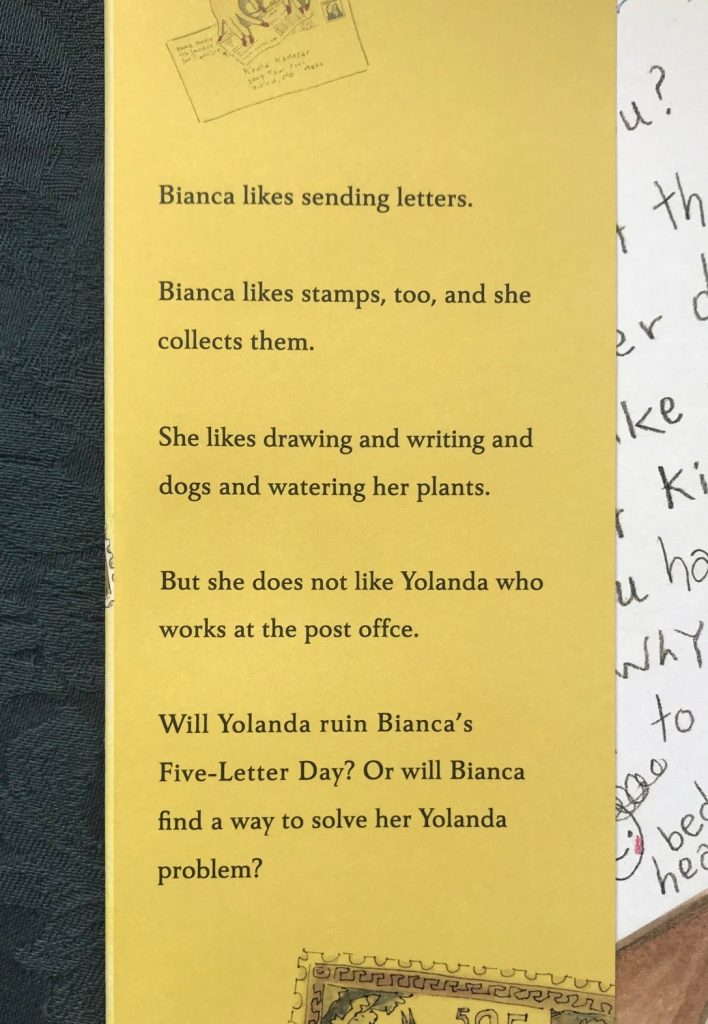 Bianca likes sending letters.
Bianca likes stamps, too, and she
collects them.
She likes drawing and writing and
dogs and watering her plants.
But she does not like Yolanda who
works at the post offce.
Will Yolanda ruin Bianca's
Five-Letter Day? Or will Bianca
find a way to solve her Yolanda
problem?
u?
th
er
ke
Ki
u ha
WhY
to
bed
hea